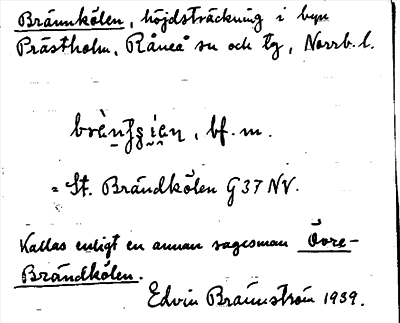 Brännkölen, höjdsträckning i byn
Prästholm, Råneå sn och tg, Norrb. l.
bf. m.
= St. Brändkölen G37 NV.
Kallas enligt en annan sagesman Övre-
Brändkölen.
Edvin Brännström 1939.